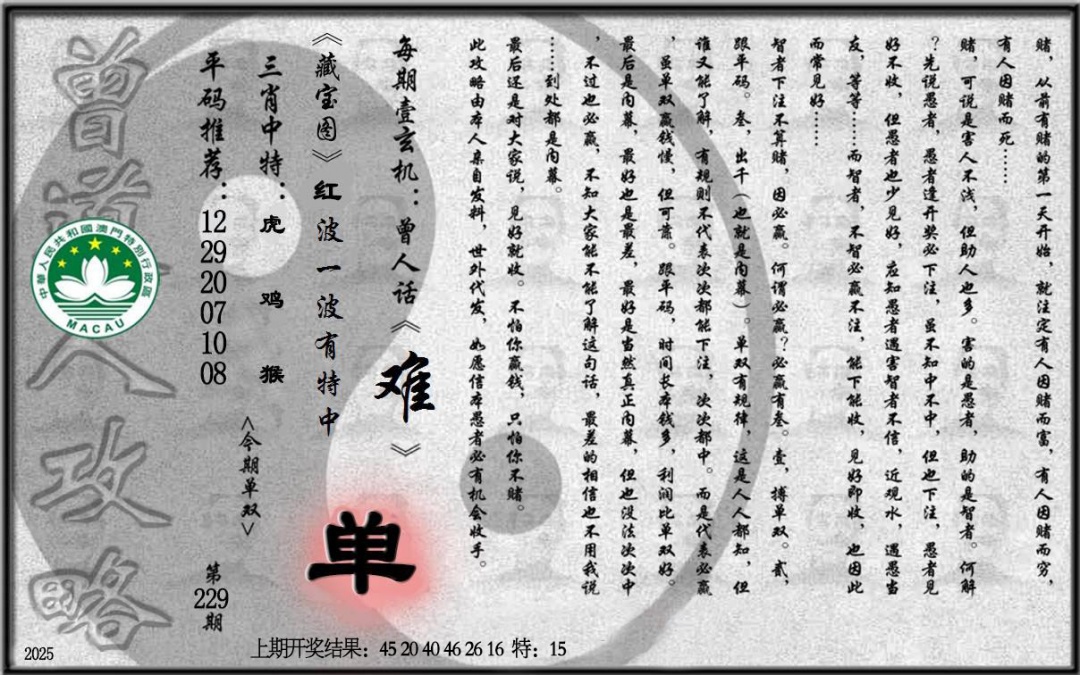 赌，从前有赌的第一天开始，就注定有人因赌而富，有人因赌而穷，
有人因赌而死……
赌，可说是害人不浅，但助人也多。害的是愚者，助的是智者。何解
？先说愚者，愚者逢开奖必下注，虽不知中不中，但也下注，愚者见
好不收，但愚者也少见好，应知愚者遇害智者不信，近观水，遇愚当
友，等等……而智者，不智必赢不注，能下能收，见好即收，也因此
而常见好……
智者下注不算赌，因必赢。何谓必赢？必赢有叁。壹，搏单双。贰，
跟单码。叁，出千（也就是内幕）。单双有规律，这是人人都知，但
谁又能了解，有规则不代表次次都能下注，次次都中。而是代表必赢
，虽单双赢钱慢，但可靠。跟单码，时间长本钱多，利润比单双好。
最后是内幕，最好也是最差，最好是当然真正内幕，但也没法次次中
，不过也必赢，不知大家能不能了解这句话，最差的相信也不用我说
……到处都是内幕。
最后还是对大家说，见好就收。不怕你赢钱，只怕你不赌。
此攻略由本人亲自发料，世外代发，如愿信本愚者必有机会收手。
每期壹玄机：曾人话《难》
《藏宝图》红波一波有特中
单
三肖中特：虎 鸡 猴
<今期单双>
平码推荐：12 29 20 07 10 08
第229期
曾道人攻略
中華人民共和國澳門特別行政區
MACAU
2025
上期开奖结果：45 20 40 46 26 16 特：15